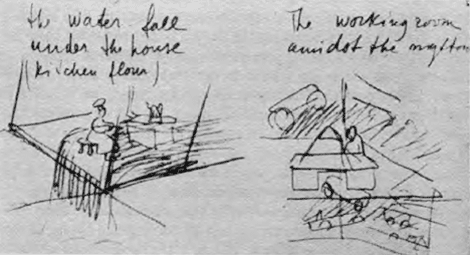 the water fall
under the house
(kitchen floor)
The working room
amidst the